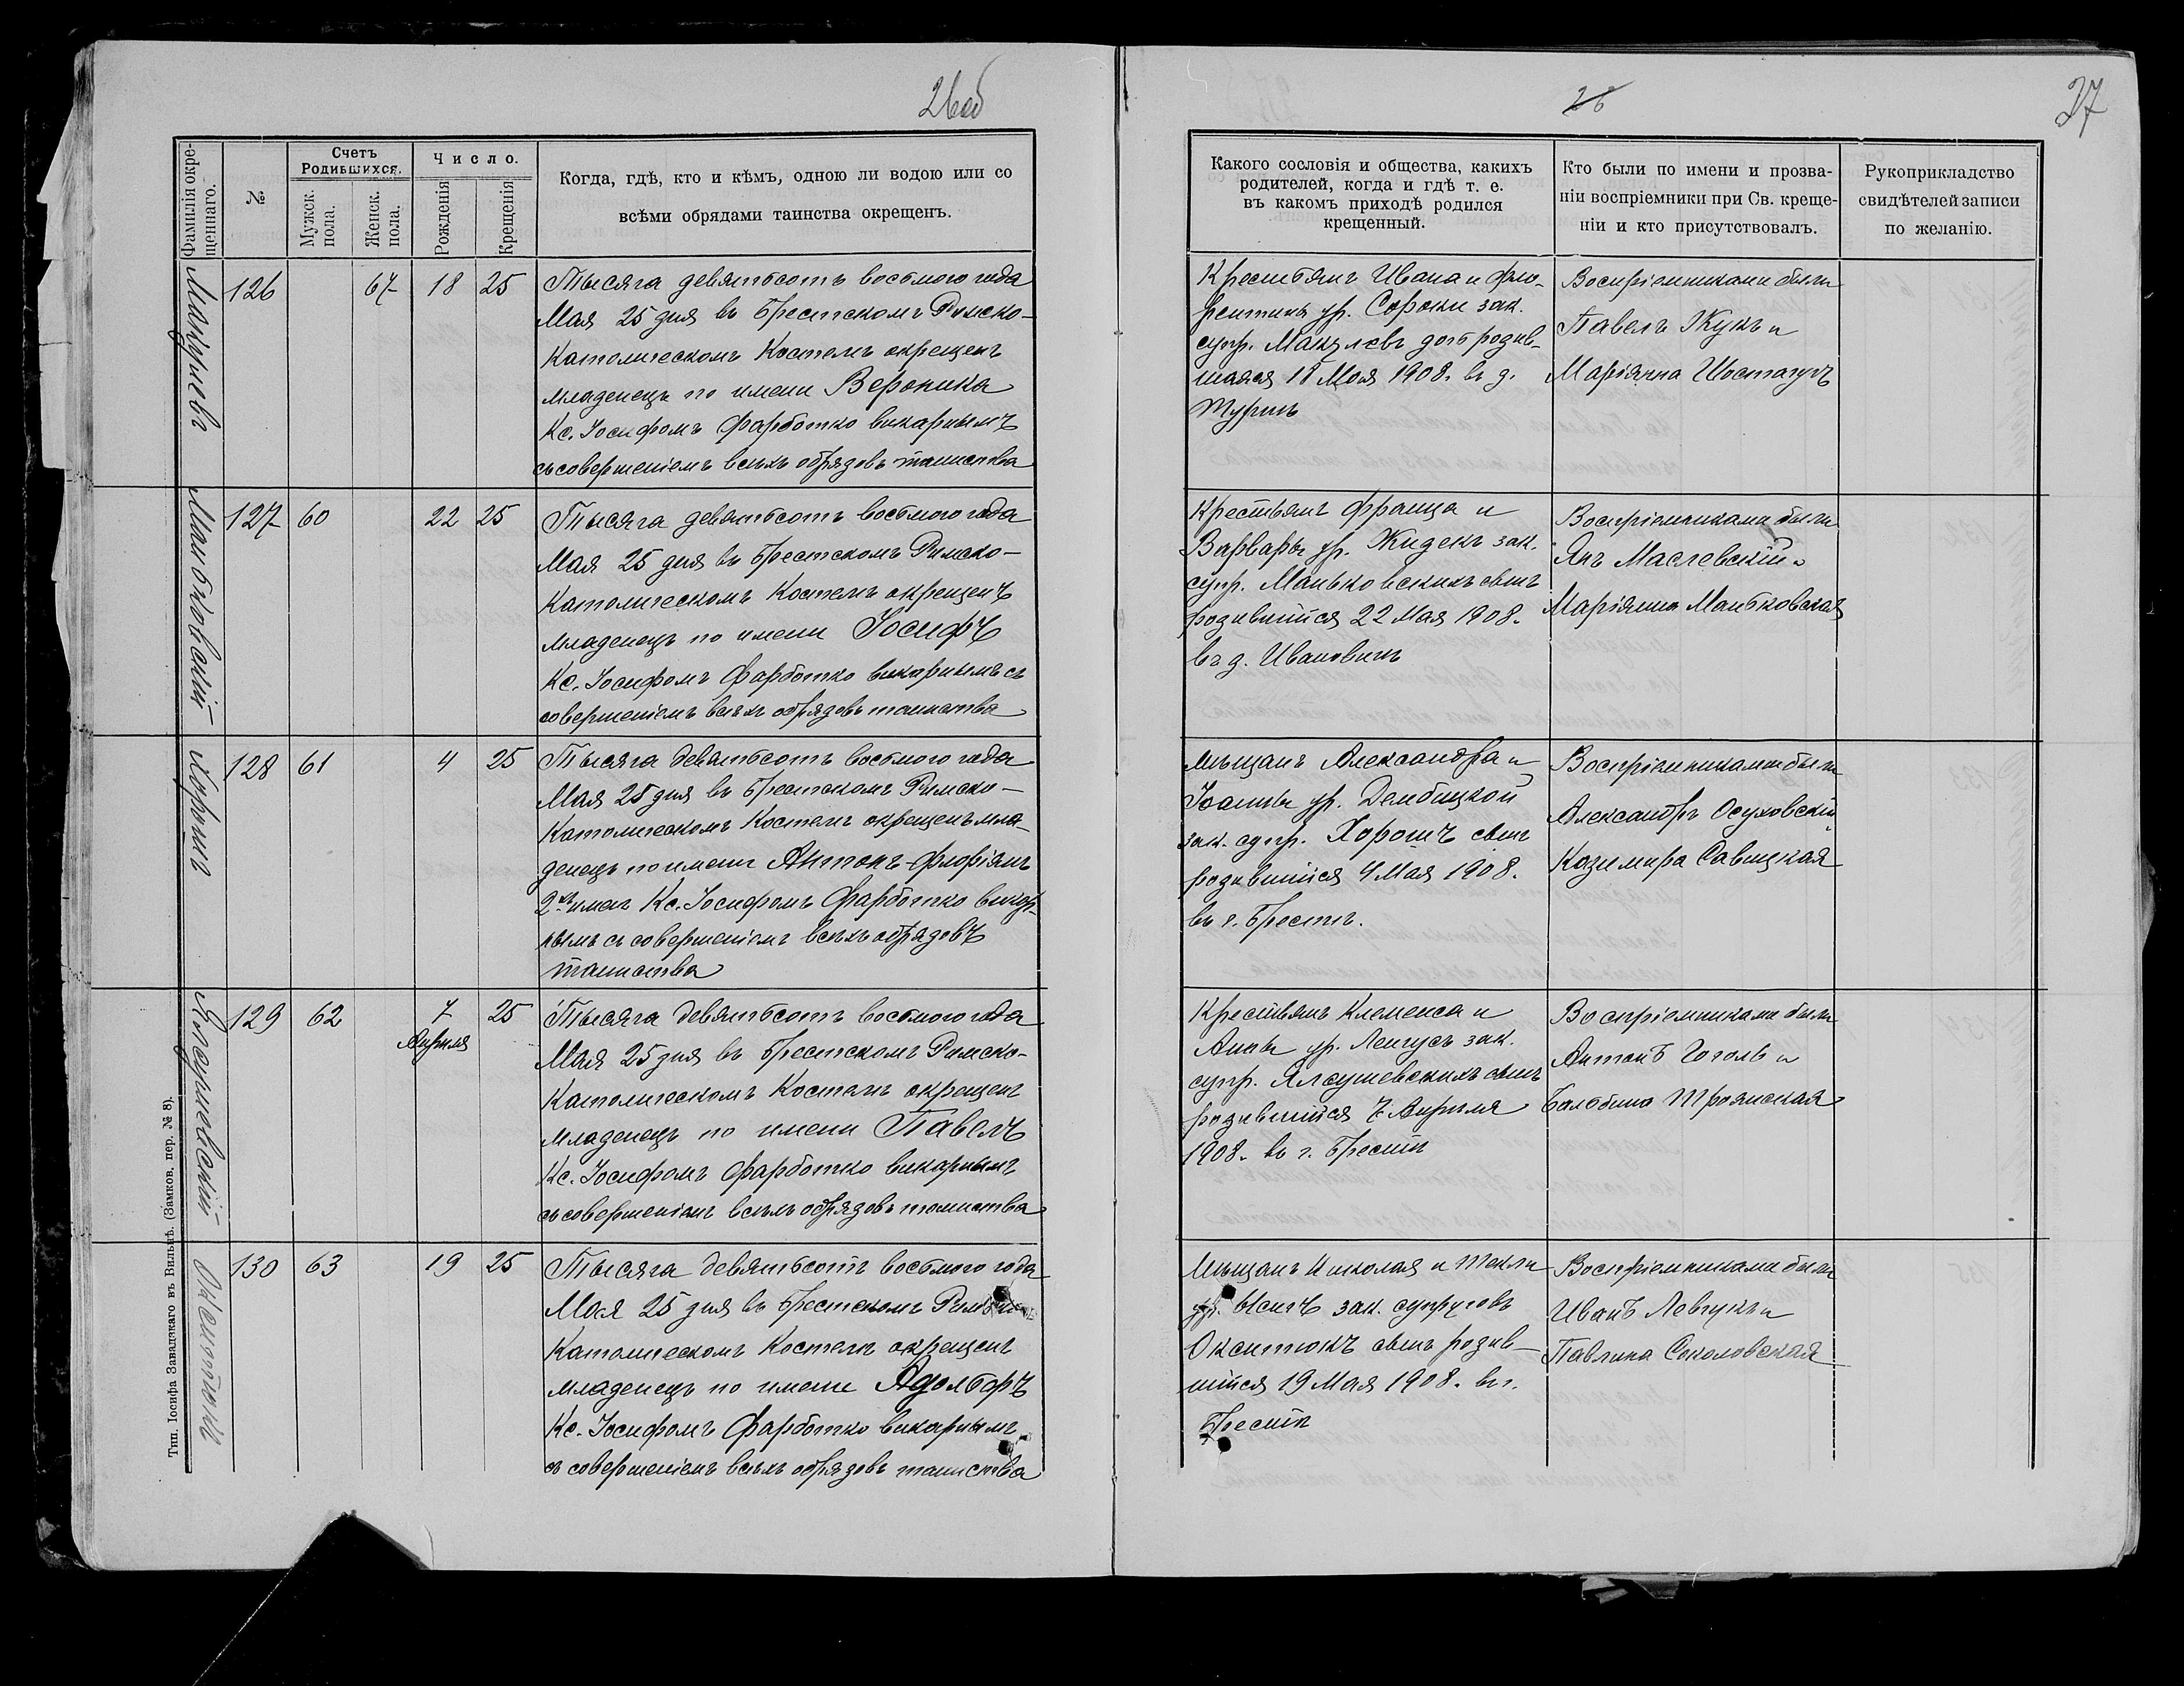 26об
Фамилія окре-
щеннаго.
№
Счетъ
Родившихся.
Мужск.
пола.
Женск.
пола.
Число.
Рожденія
Крещенія
Когда, гдѣ, кто и кѣмъ, одною ли водою или со
всѣми обрядами таинства окрещенъ.
126
67
18
25
Тысяча девятьсотъ восьмого года
Мая 25 дня въ Брестскомъ Римско-
Католическомъ Костелѣ окрещенъ
младенецъ по имени Вероника
Кс. Іосифомъ Фарботко викарнымъ
съ совершеніемъ всѣхъ обрядовъ таинства
Маньковскій
127
60
22
25
Тысяча девятьсотъ восьмого года
Мая 25 дня въ Брестскомъ Римско-
Католическомъ Костелѣ окрещенъ
младенецъ по имени Іосифъ
Кс. Іосифомъ Фарботко викарнымъ съ
совершеніемъ всѣхъ обрядовъ таинства
128
61
4
25
Тысяча девятьсотъ восьмого года
Мая 25 дня въ Брестскомъ Римско-
Католическомъ Костелѣ окрещенъ мла-
денецъ по имени Антонъ-Флоріанъ
2хъ имен Кс. Іосифомъ Фарботко викар-
нымъ съ совершеніемъ всѣхъ обрядовъ
таинства
129
62
7
Апрѣля
25
Тысяча девятьсотъ восьмого года
Мая 25 дня въ Брестскомъ Римско-
Католическомъ Костелѣ окрещенъ
младенецъ по имени Павелъ
Кс. Іосифомъ Фарботко викарнымъ
съ совершеніемъ всѣхъ обрядовъ таинства
Окситюкъ
130
63
19
25
Тысяча девятьсотъ восьмого года
Мая 25 дня въ Брестскомъ Римско-
Католическомъ Костелѣ окрещенъ
младенецъ по имени Адольфъ
Кс. Іосифомъ Фарботко викарнымъ
съ совершеніемъ всѣхъ обрядовъ таинства
Тип. Іосифа Завадзкаго въ Вильнѣ. (Замков. пер. № 8).
26
27
Какого сословія и общества, какихъ
родителей, когда и гдѣ т. е.
въ какомъ приходѣ родился
крещенный.
Кто были по имени и прозва-
ніи воспріемники при Св. креще-
ніи и кто присутствовалъ.
Рукоприкладство
свидѣтелей записи
по желанію.
Крестьянъ Ивана и Фло-
рентины ур. Сороки зак.
супр. дочь родив-
шаяся 18 Мая 1908. въ д.
Воспріемниками были
Павелъ Жукъ и
Маріянна
Крестьянъ Франца и
Варвары ур. Жидекъ зак.
супр. Маньковскихъ сынъ
родившійся 22 Мая 1908.
въ д.
Воспріемниками были
Янъ Маслевскій и
Маріянна Маньковская
Мѣщанъ Александра и
Іоанны ур. Дембицкой
зак. супр. Хорошъ сынъ
родившійся 4 Мая 1908.
въ г. Брестѣ.
Воспріемниками были
Александръ Осуховскій и
Казимира Савицкая
Крестьянъ Клеменса и
Анны ур. зак.
супр. сынъ
родившійся 7 Апрѣля
1908. въ г. Брестѣ
Воспріемниками были
Антонъ Гоголь и
Бальбина Троянская
Мѣщанъ Николая и Текли
ур. зак. супруговъ
Окситюкъ сынъ родив-
шійся 19 Мая 1908. въ г.
Брестѣ
Воспріемниками были
Иванъ Левчукъ и
Павлина Соколовская